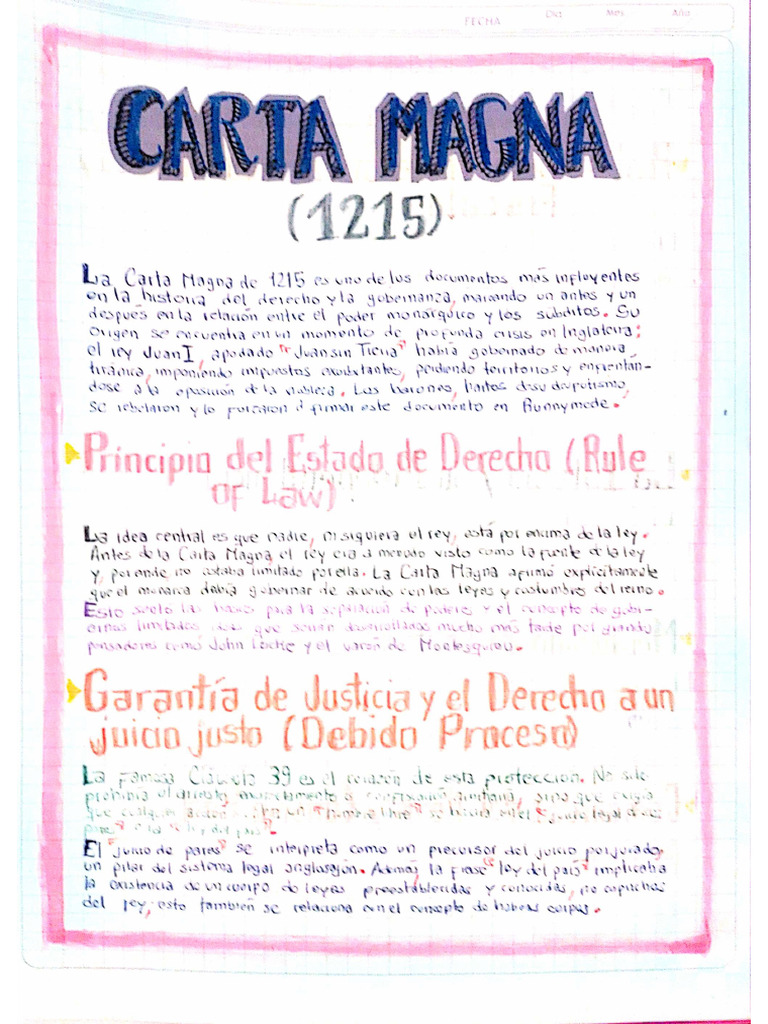 FECHA Día Mes Año
CARTA MAGNA
(1215)
La Carta Magna de 1215 es uno de los documentos más influyentes
en la historia del derecho y la gobernanza, marcando un antes y un
después en la relación entre el poder monárquico y los subditos. Su
origen se encuentra en un momento de profunda crisis en Inglaterra:
el rey Juan I, apodado "Juan sin Tierra" había gobernado de manera
tiránica, imponiendo impuestos exorbitantes, perdiendo territorios y enfrentán-
dose a la oposición de la nobleza. Los barones, hartos de su despotismo,
se rebelaron y lo forzaron a firmar este documento en Runnymede.
Principio del Estado de Derecho (Rule
of Law)
La idea central es que nadie, ni siquiera el rey, está por encima de la ley.
Antes de la Carta Magna, el rey era a menudo visto como la fuente de la ley
y, por ende, no estaba limitado por ella. La Carta Magna afirmó explícitamente
que el monarca debía gobernar de acuerdo con las leyes y costumbres del reino.
Esto sentó las bases para la separación de poderes y el concepto de gobi-
ernos limitados, ideas que serían desarrolladas mucho más tarde por grandes
pensadores como John Locke y el varón de Montesquieu.
Garantía de Justicia y el Derecho a un
juicio justo (Debido Proceso)
La famosa Cláusula 39 es el corazón de esta protección. No solo
prohibía el arresto, encarcelamiento o confiscación arbitraria, sino que exigía
que cualquier acción contra un "hombre libre" se hiciera en el "juicio legal de sus
pares" o la "ley del país".
El "juicio de pares" se interpreta como un precursor del juicio por jurado,
un pilar del sistema legal anglosajón. Además, la frase "ley del país" implicaba
la existencia de un cuerpo de leyes preestablecidas y conocidas, no caprichos
del rey; esto también se relaciona con el concepto de habeas corpus.